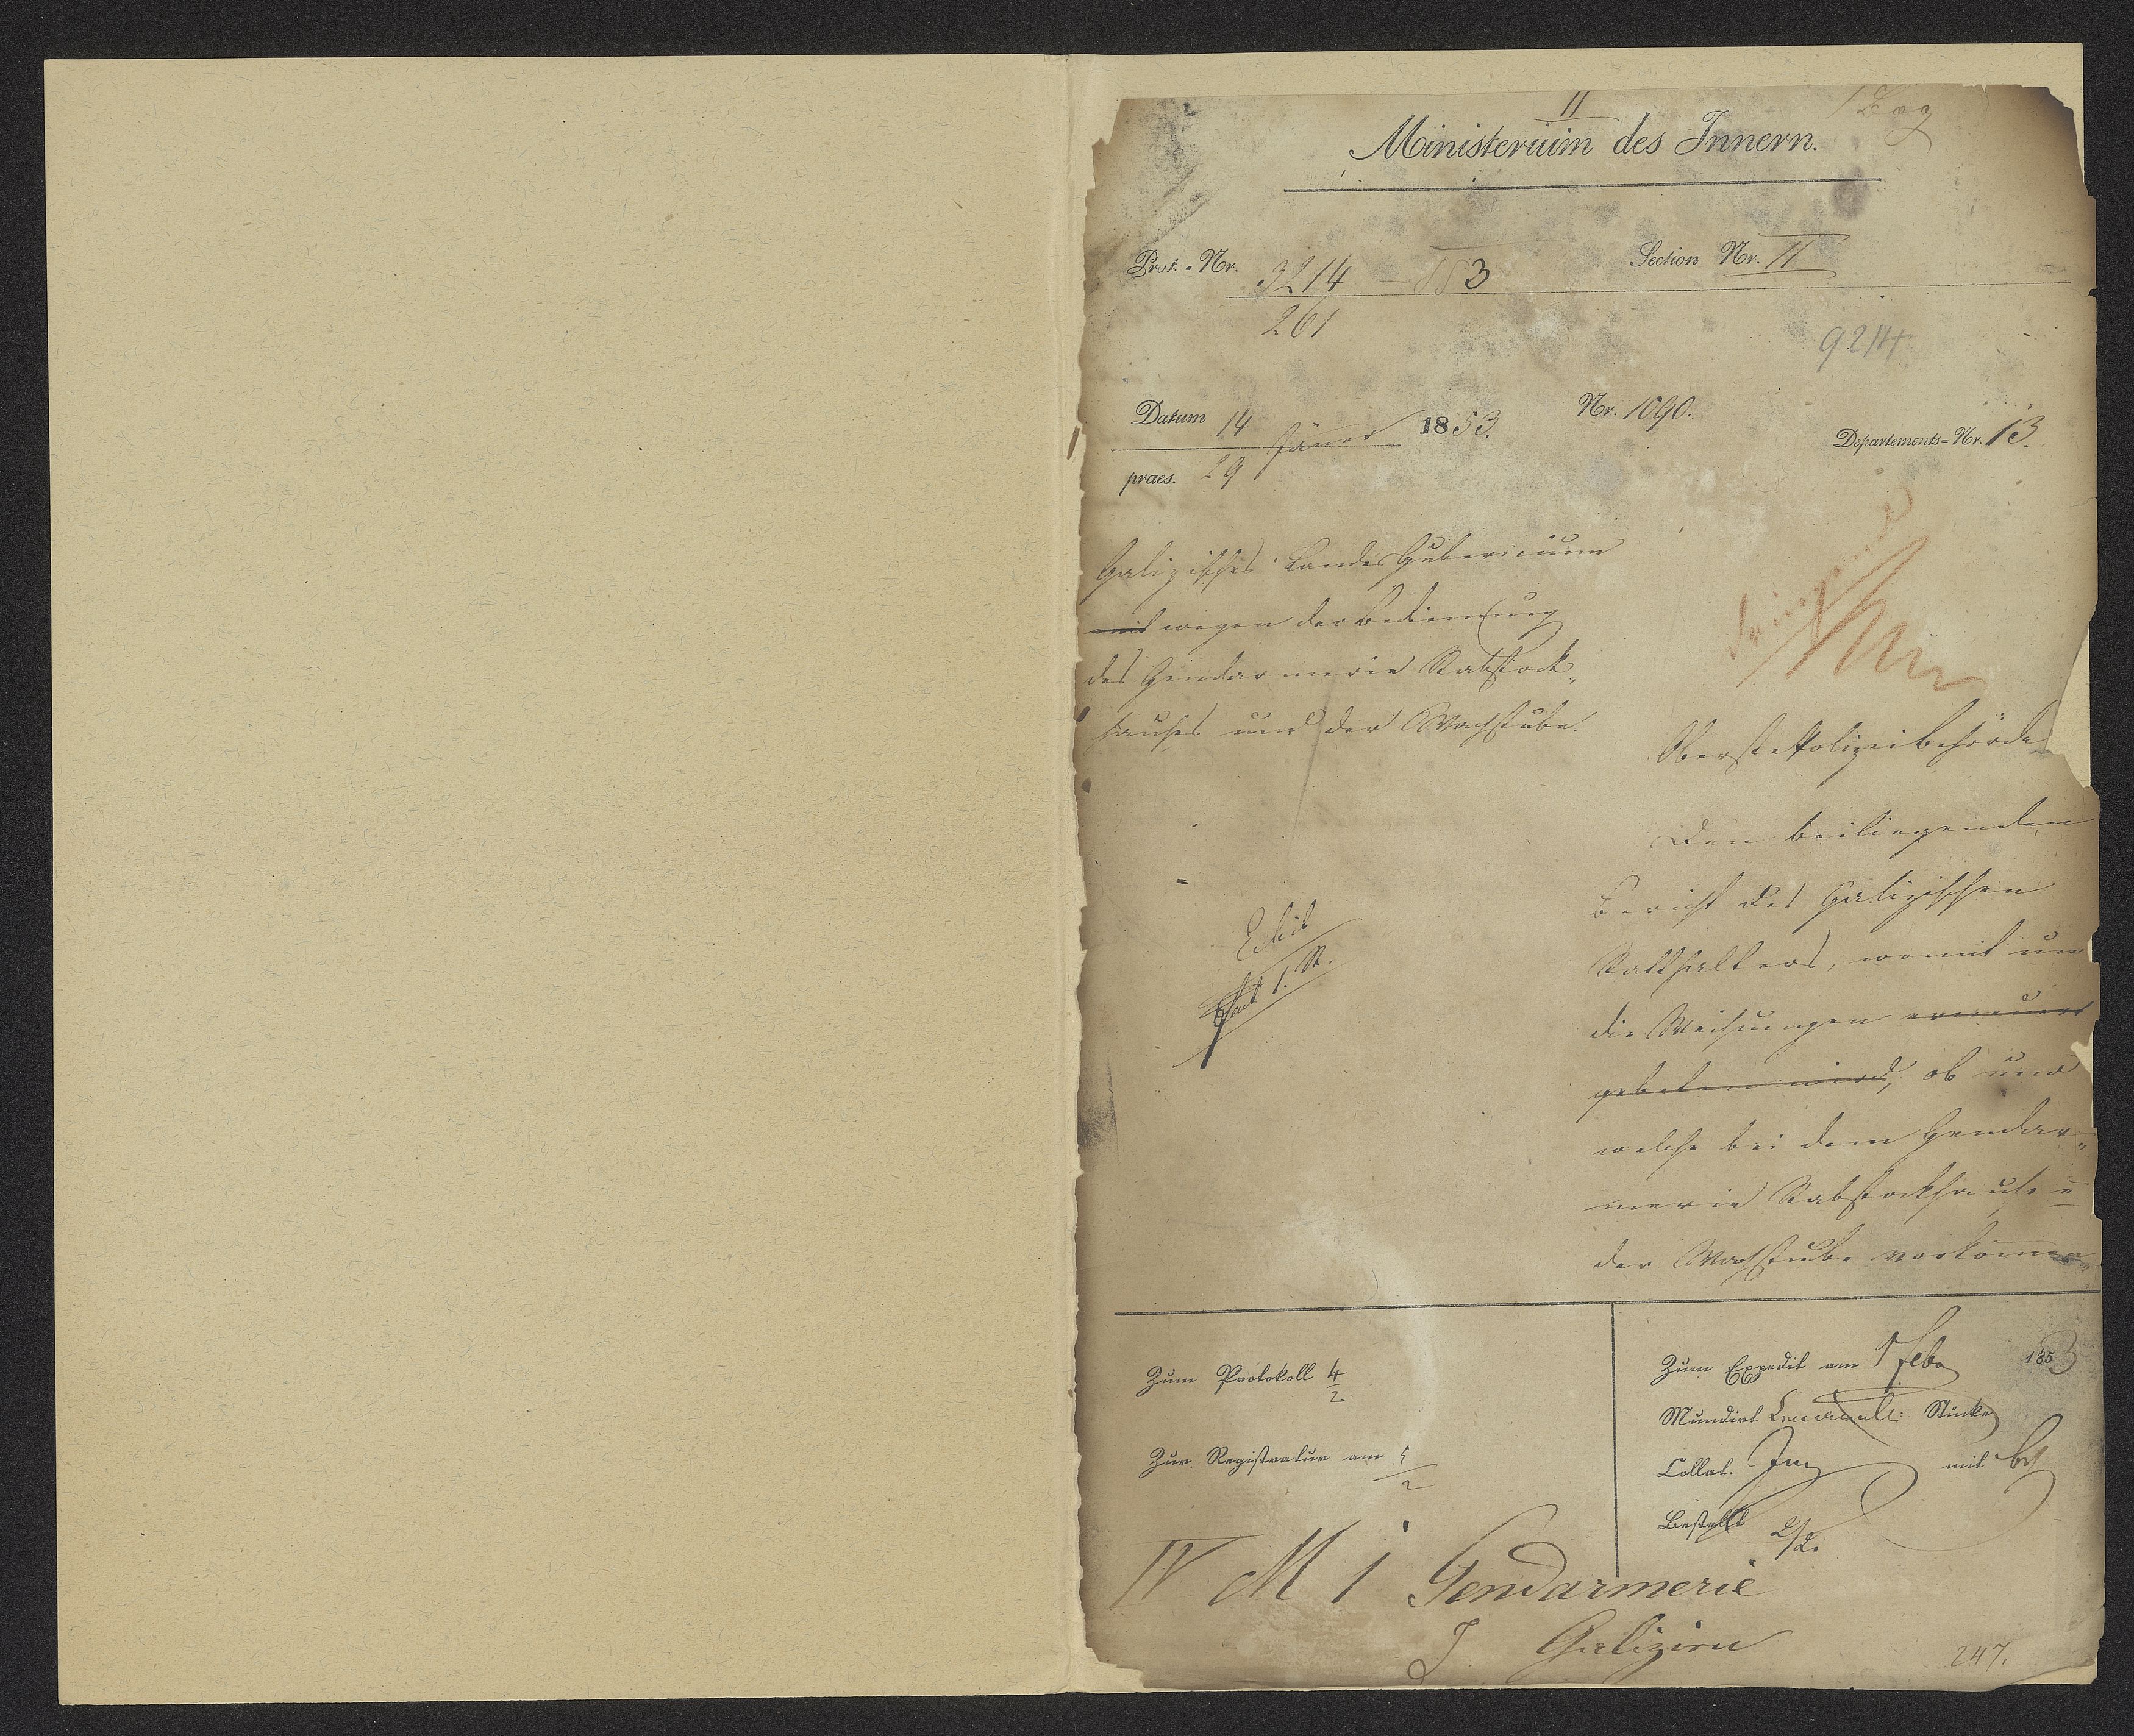 II
1 Bog
Ministerium des Innern.
Prot.-Nr. 3214 – 853
Section Nr. II
261
9214
Datum 14 Jäner 1853.
Nr. 1090.
Departements-Nr. 13.
praes. 29
dringend
Galizisches Landes Gubernium
mit wegen der Bedienung
des Gendarmerie Stabstock-
hauses und der Wachstube.
Oberste Polizeibehörde
Den beiliegenden
Bericht des Galizischen
Statthalters, womit um
die Weisungen erneuert
gebeten wird, ob und
welche bei dem Gendar-
merie Stabstockhause u
der Wachstube vorkommen
Zum Protokoll 4/2
Zur Registratur am 5/2
Zum Expedit am 1 Feb 1853
Mundirt Stücke
Collat. mit
Bestellt 2/2.
IV M 1 Gendarmerie
J Galizien
247.